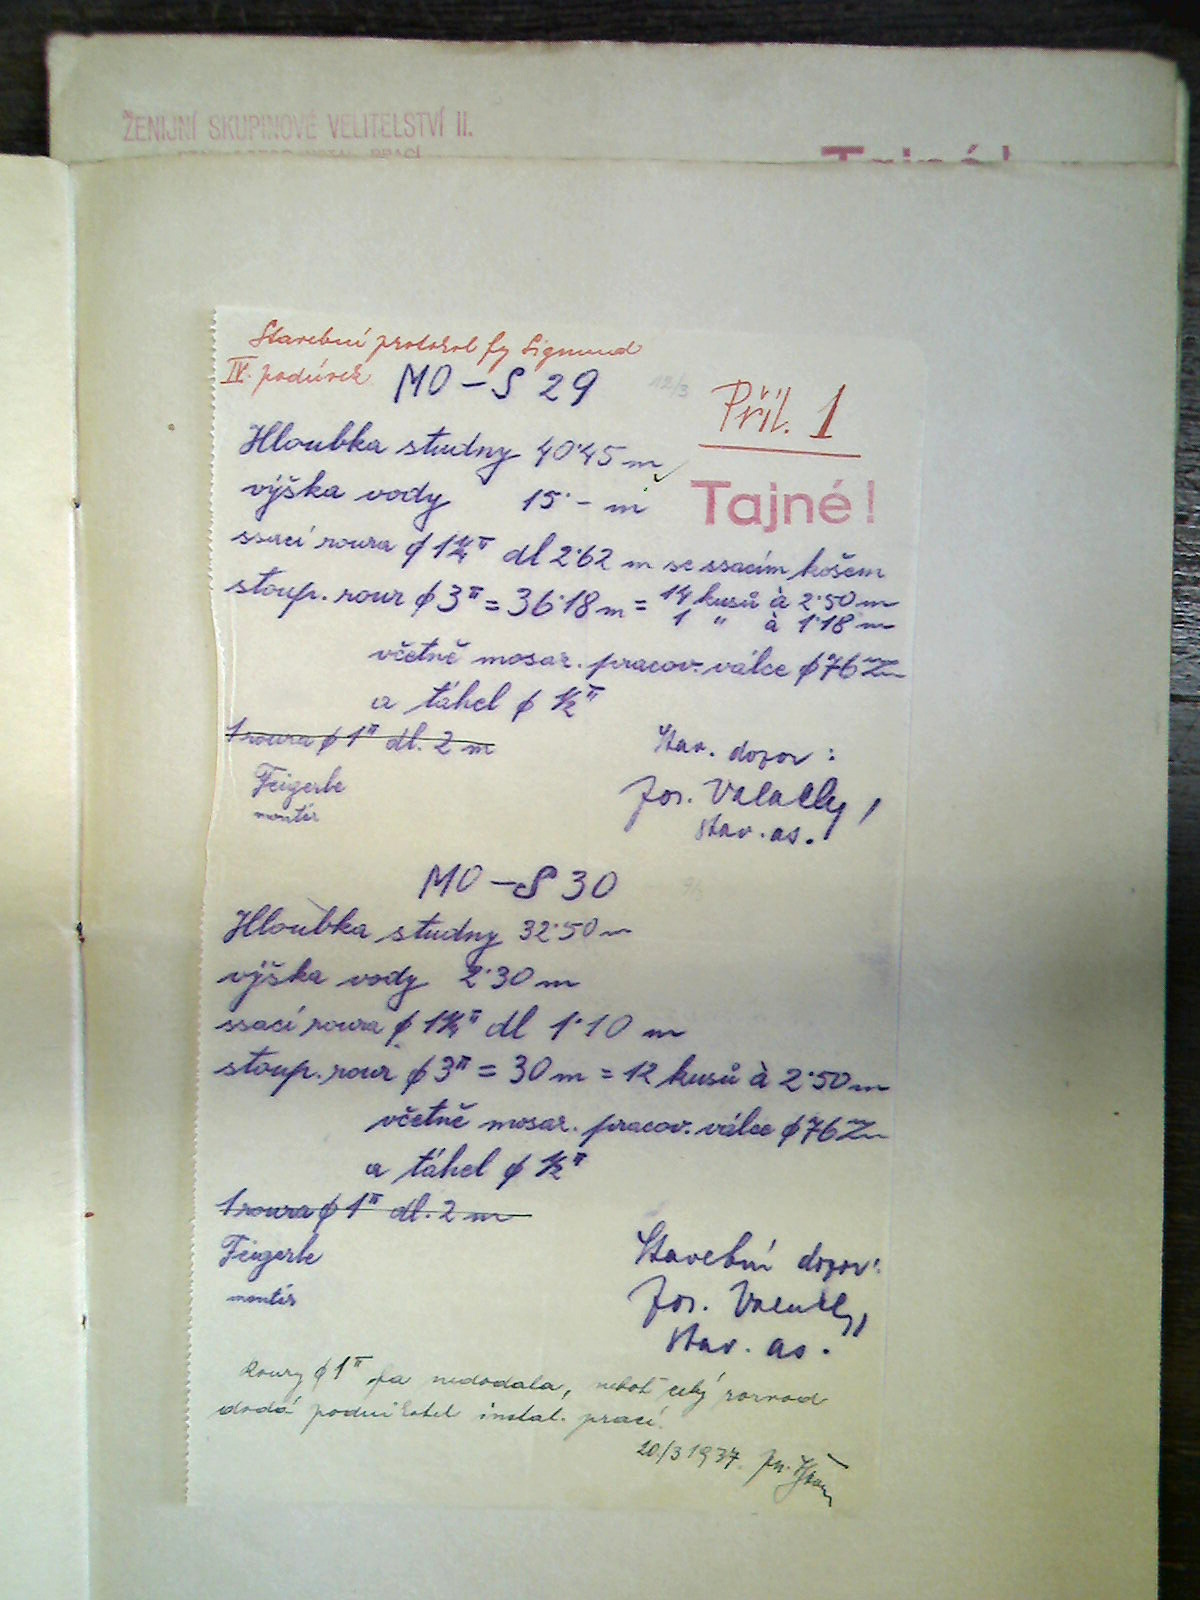 ŽENIJNÍ SKUPINOVÉ VELITELSTVÍ II.
PRACÍ
Tajné!
Stavební protokol fy Sigmund
IV. podúsek
MO-S 29
12/3
Příl. 1
Hloubka studny 40·45 m
výška vody 15·- m
Tajné!
ssací roura ø 1¼" dl 2·62 m se ssacím košem
stoup. rour ø 3" = 36·18 m = 14 kusů à 2·50 m
1 " à 1·18 m
včetně mosaz. pracov. válce ø 76 m/m
a táhel ø ½"
1 roura ø 1" dl. 2 m
Stav. dozor:
Feigerle
montér
Jos.
stav. as.
MO-S 30
Hloubka studny 32·50 m
výška vody 2·30 m
ssací roura ø 1¼" dl 1·10 m
stoup. rour ø 3" = 30 m = 12 kusů à 2·50 m
včetně mosaz. pracov. válce ø 76 m/m
a táhel ø ½"
1 roura ø 1" dl. 2 m
Feigerle
montér
Stavební dozor:
Jos.
stav. as.
Roury ø 1" fa nedodala, neboť celý rozvod
dodá podnikatel instal. prací.
20/3 1937.